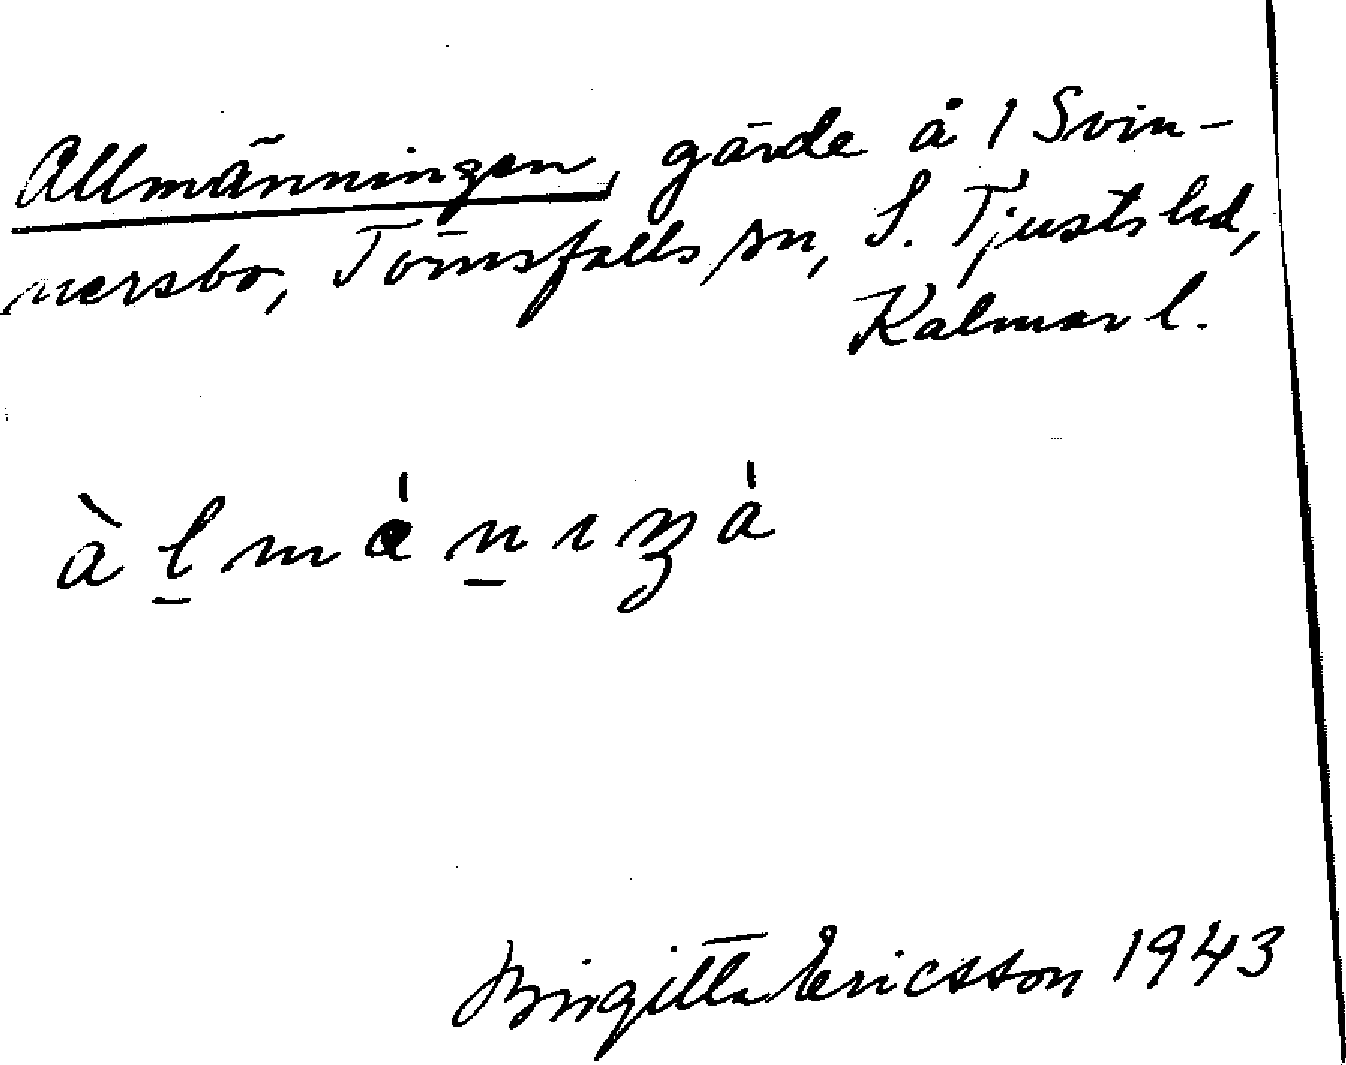 Allmänningen, gärde å 1 Svin-
nersbo, Törnsfalls sn, S. Tjusts hd,
Kalmar l.
Birgitta Ericsson 1943